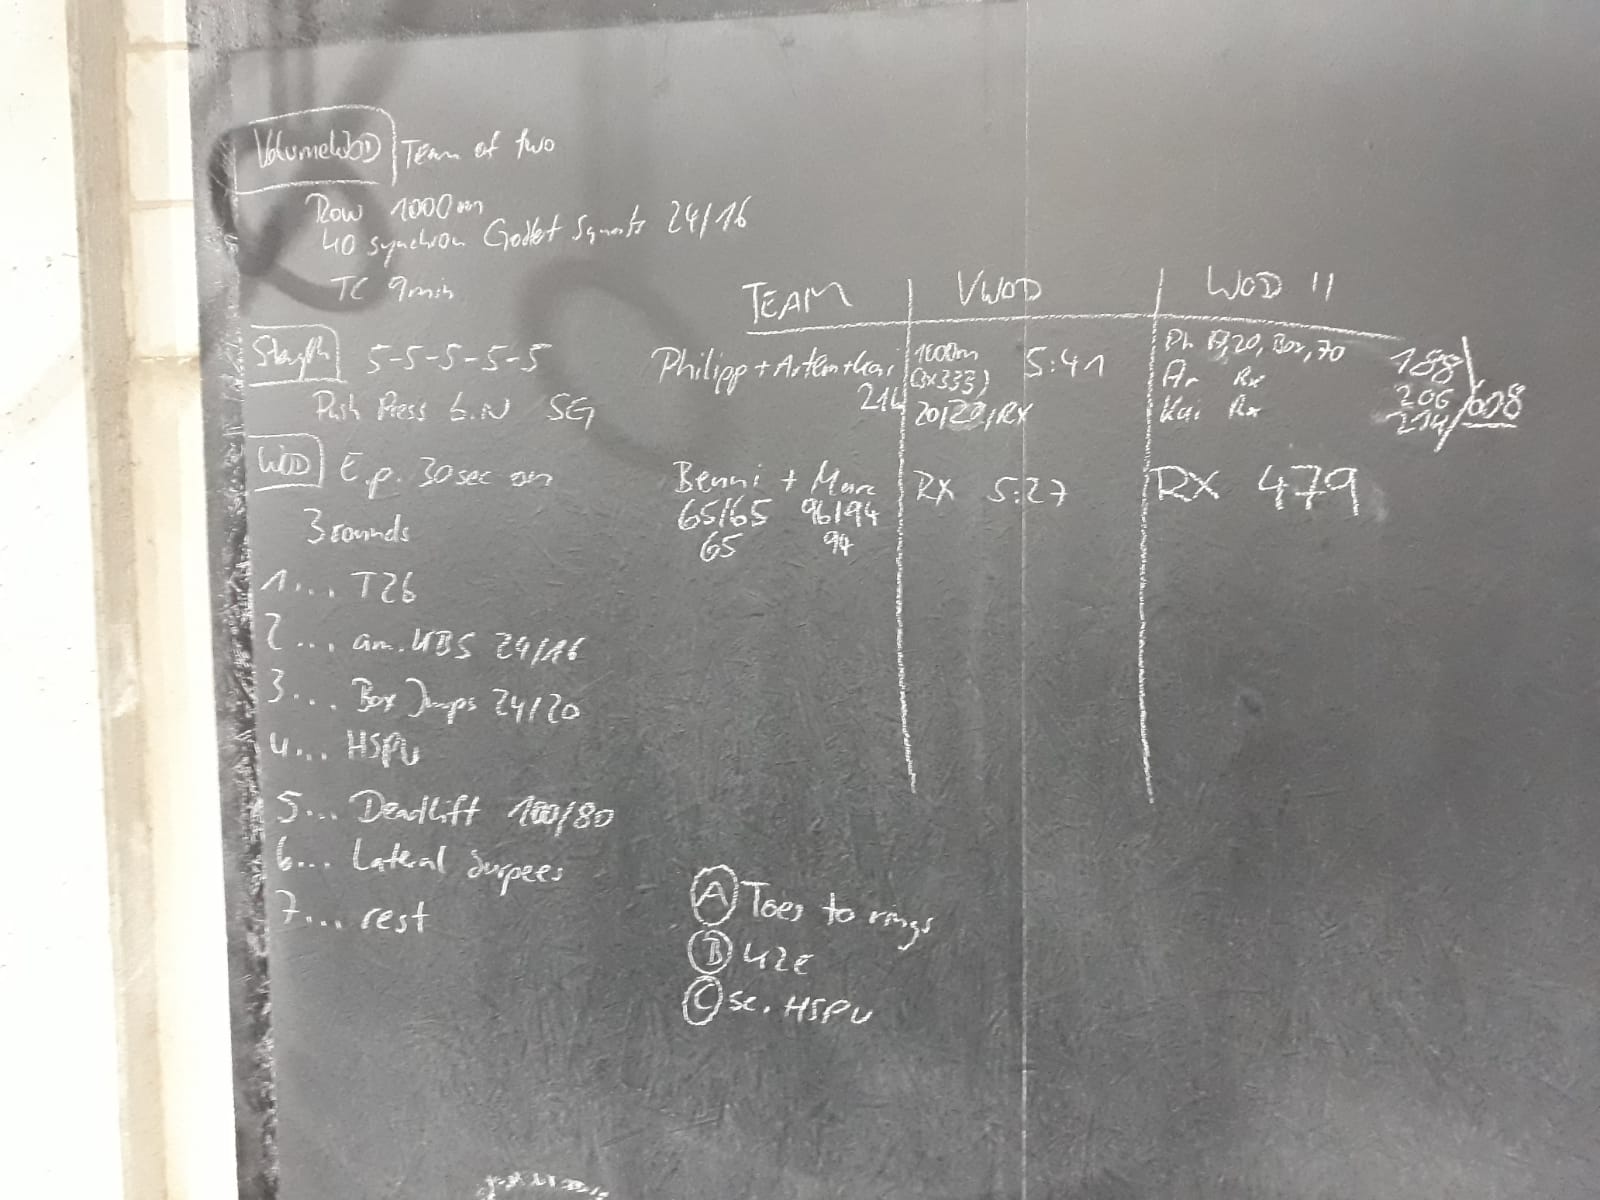 VolumeWOD Team of two
Row 1000m
40 synchron Goblet Squats 24/16
TC 9min
Stength 5-5-5-5-5
Push Press b.N SG
WOD E.p. 30sec on
3 rounds
1... T2b
2... am. KBS 24/16
3... Box Jumps 24/20
4... HSPU
5... Deadlift 100/80
6... Lateral burpees
7... rest
TEAM VWOD WOD II
Philipp + Artem + Kai 1000m 5:41 Ph 20, Box, 70 188
(3x333) Ar Rx 206 608
214 20/20/RX Kai Rx 214
Benni + Marc RX 5:27 RX 479
65/65 96/94
65 94
A Toes to rings
B 42c
C sc. HSPU